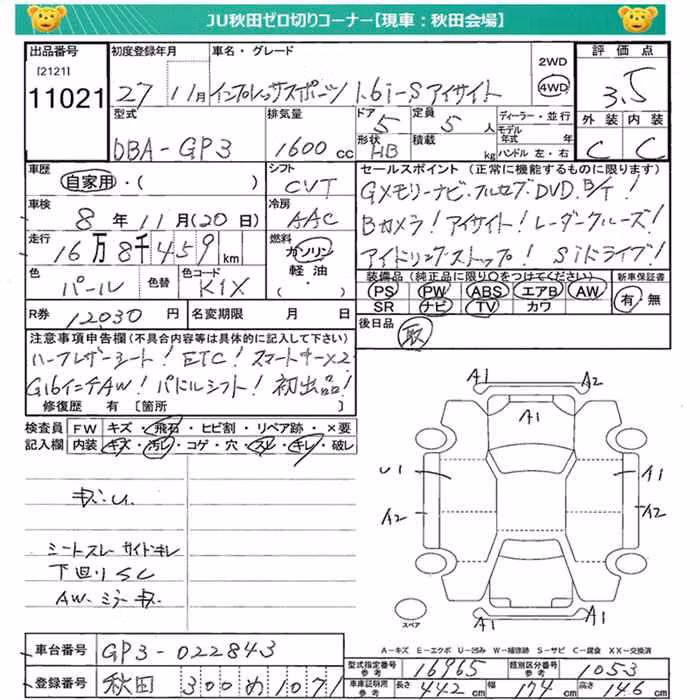 JU秋田ゼロ切りコーナー【現車：秋田会場】
出品番号 初度登録年月 車名・グレード 2WD 評価点
[2121] 11021 27 11月 インプレッサスポーツ 1.6i-S アイサイト 4WD 3.5
型式 排気量 ドア 5 定員 5人 ディーラー・並行 外装 内装
DBA-GP3 1600cc 形状 HB 積載 kg モデル年式 年 ハンドル 左・右 C C
車歴 シフト セールスポイント（正常に機能するものに限ります）
自家用・( ) CVT GXモリーナビ・フルセグ・DVD.B/T!
車検 8年11月(20日) 冷房 AAC Bカメラ!アイサイト!レーダークルーズ!
走行 16万8千459km 燃料 ガソリン 軽油・( ) アイドリングストップ!Siドライブ!
色 パール 色替 色コード K1X 装備品（純正品に限り〇をつけてください） 新車保証書
PS PW ABS エアB AW 有・無
SR ナビ TV カワ
R券 12030円 名変期限 月 日 後日品 取
注意事項申告欄(不具合内容等は具体的に記入して下さい)
ハーフレザーシート!ETC!スマートキー×2
G16インチAW!パドルシフト!初出品!
修復歴 有 [箇所 ]
検査員 FW キズ・飛石・ヒビ割・リペア跡・×要
記入欄 内装 キズ・汚レ・コゲ・穴・スレ・キレ・破レ
A1 A2
A1
キズ.U. U1 A1
A2 A2
シートスレーサイドキレ
下回りSC
AW.ミラーキズ
A1 A1
スペア
A－キズ E－エクボ U－凹み W－補修跡 S－サビ C－腐食 XX－交換済
車台番号 GP3-022843 型式指定番号 参考 16965 類別区分番号 参考 1053
登録番号 秋田 300 め 1071 車庫証明用 参考 長さ 442cm 幅 174cm 高さ 146cm